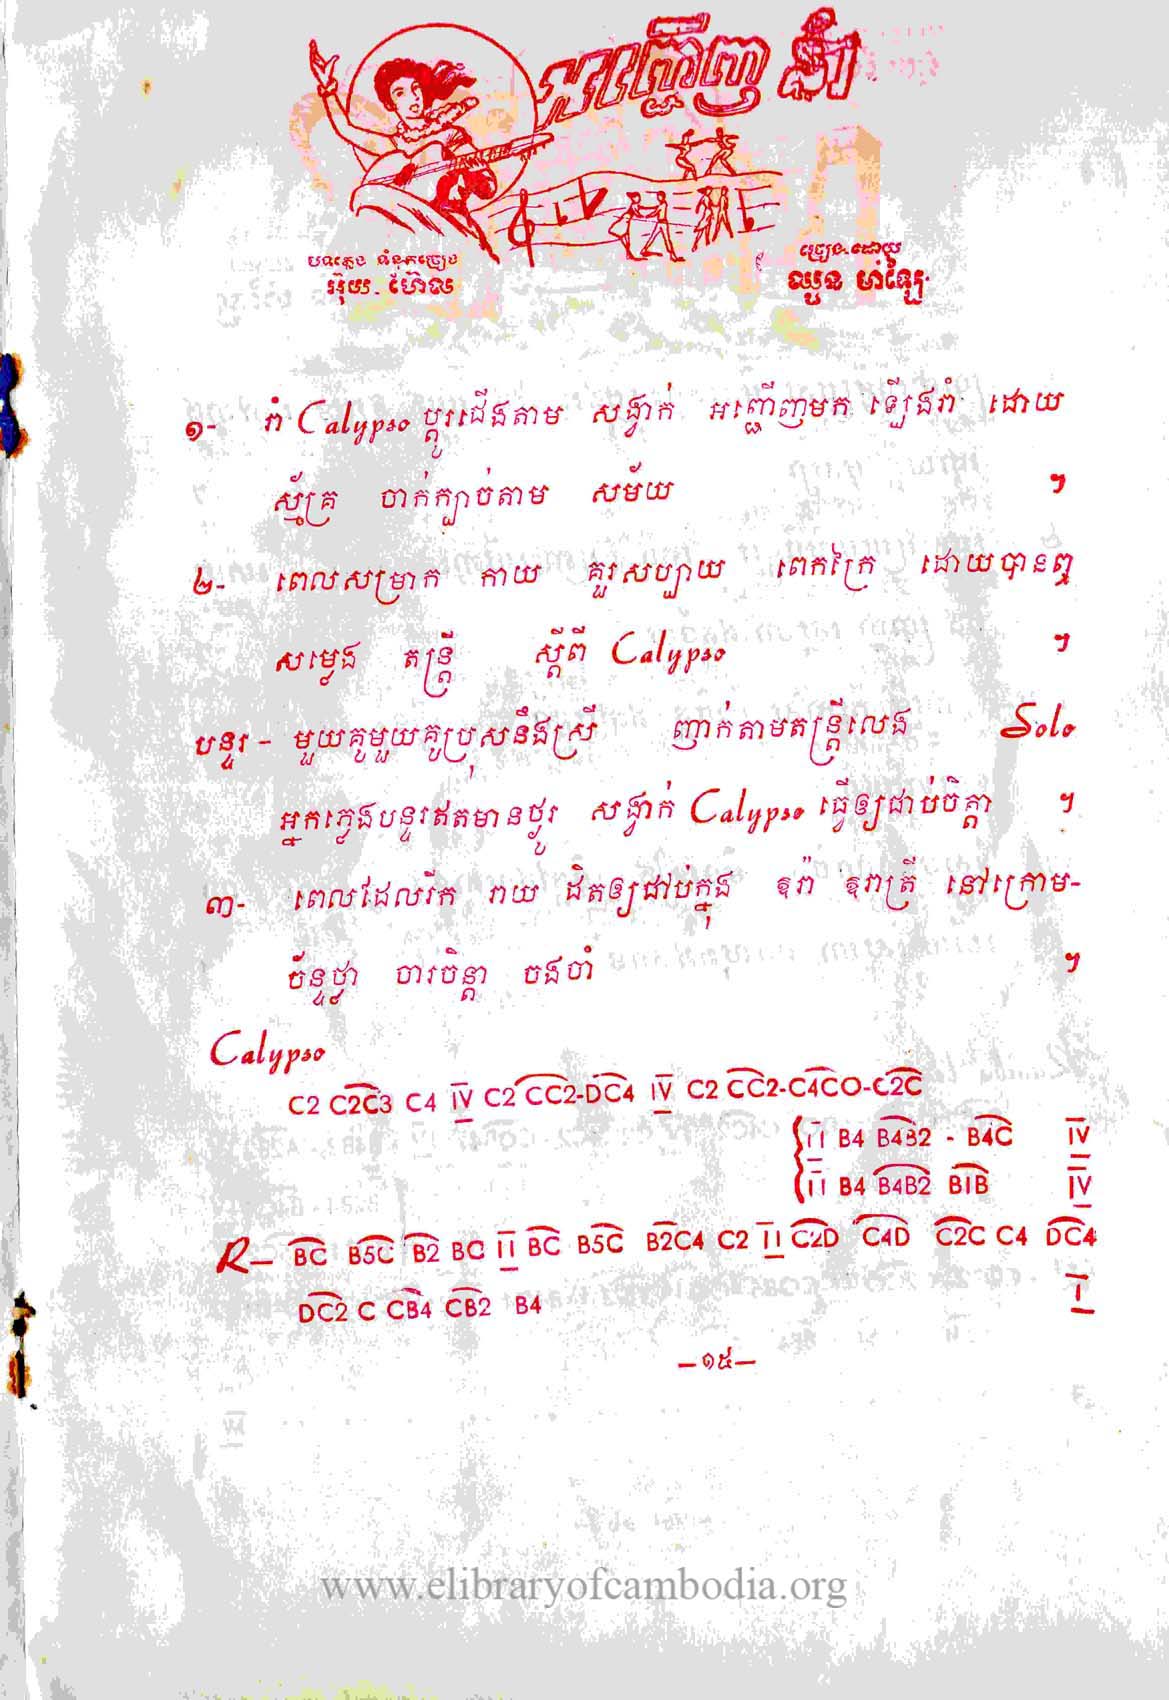 អញ្ជើញ រាំ
បទភ្លេង ទំនុកច្រៀង
អ៊ុយ. ហ៊ែល
ច្រៀង.ដោយ
ឈួន ម៉ាឡៃ
១- រាំ Calypso ប្ដូរជើងតាម សង្វាក់ អញ្ជើញមក ឡើងរាំ ដោយ
ស្ម័គ្រ ចាក់ក្បាច់តាម សម័យ ។
២- ពេលសម្រាក កាយ គួរសប្បាយ ពេកក្រៃ ដោយបានឮ
សម្លេង តន្ត្រី ស្ដីពី Calypso ។
បន្ទរ - មួយគូមួយគូប្រុសនឹងស្រី ញាក់តាមតន្ត្រីលេង Solo
អ្នកភ្លេងបន្ទរឥតមានថ្ងូរ សង្វាក់ Calypso ធ្វើឲ្យជាប់ចិត្តា ។
៣- ពេលដែលរីក រាយ ដិតឲ្យជាប់ក្នុង ឱរ៉ា ឱរាត្រី នៅក្រោម-
ច័ន្ទថ្លា ចារចិន្តា ចងចាំ ។
Calypso
C2 C2C3 C4 IV C2 CC2-DC4 IV C2 CC2-C4CO-C2C
II B4 B4B2 - B4C IV
II B4 B4B2 B1B IV
R— BC B5C B2 BC II BC B5C B2C4 C2 II C2D C4D C2C C4 DC4
DC2 C CB4 CB2 B4 I
—១៥—
www.elibraryofcambodia.org